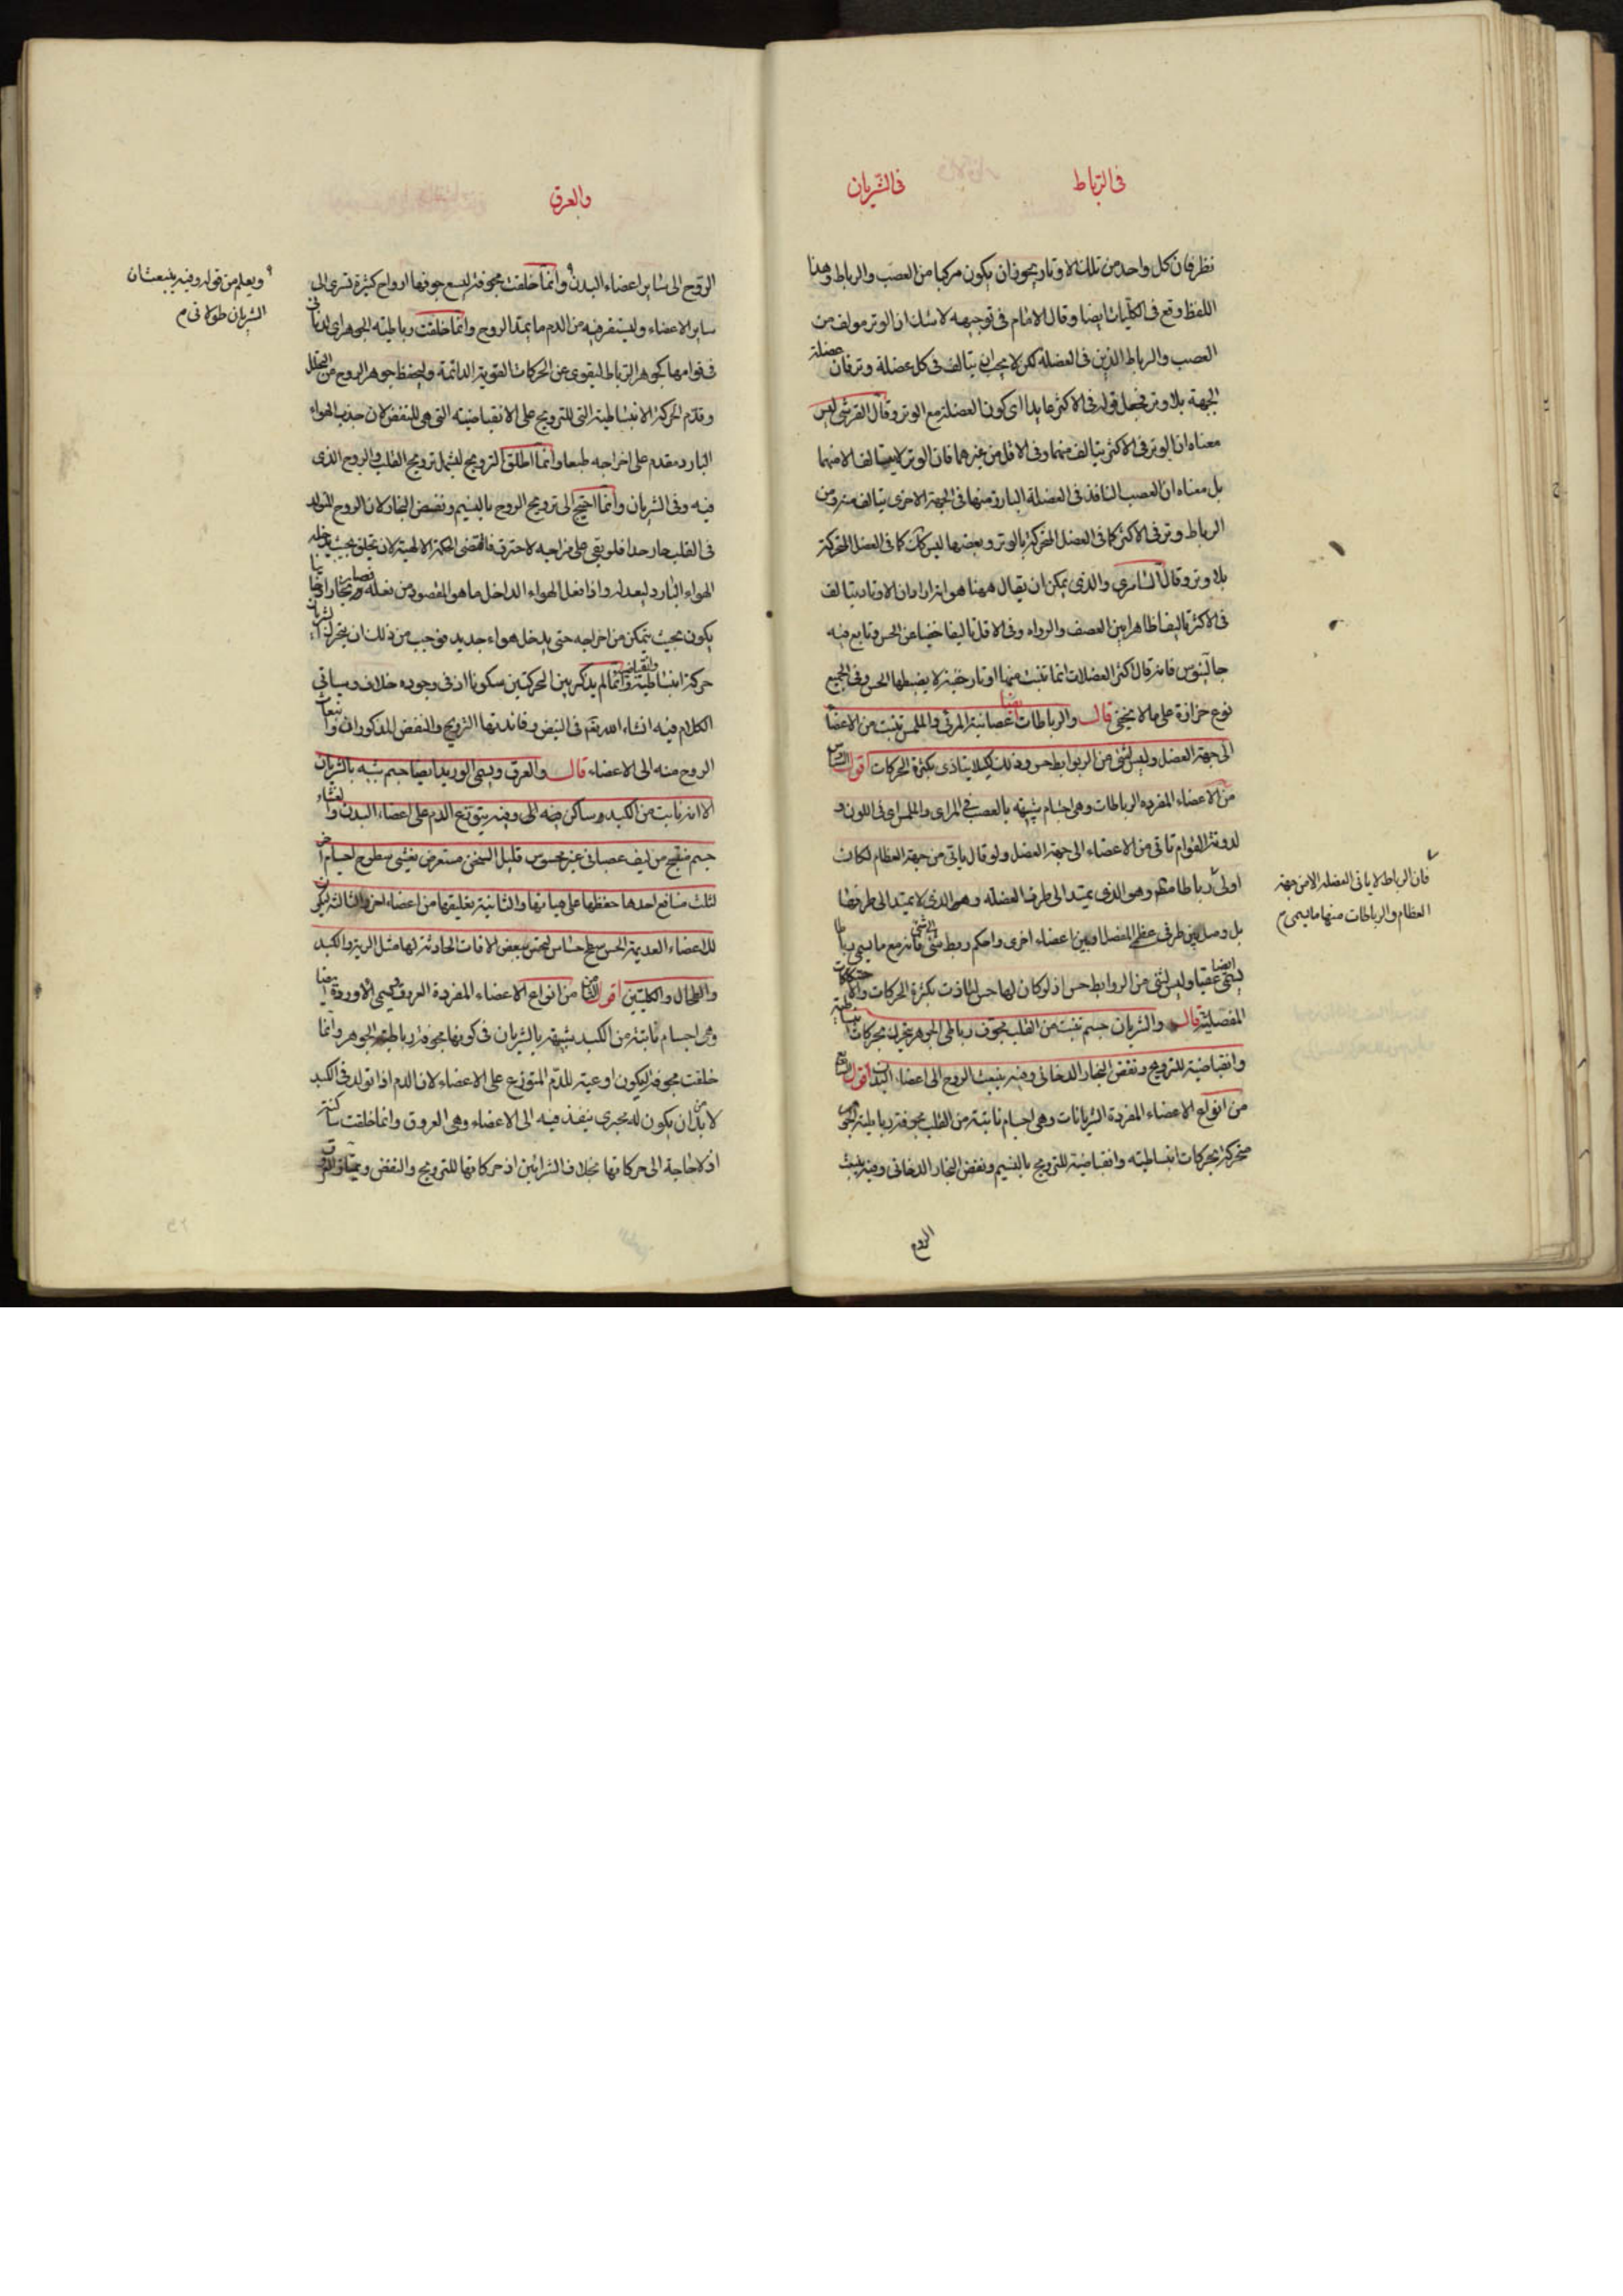 فى الرباط
فى الشريان
نظر فان كل واحد من تلك الاوتار يجوز ان يكون مركبا من العصب والرباط وهذا
اللفظ وقع فى الكليات ايضا وقال الامام فى توجيهه لا شك ان الوتر مولف من
العصب والرباط الذين فى العضلة لكن لا يجب ان يتالف فى كل عضلة وتر فان عضلة
الجبهة بلا وتر فجعل قوله فى الاكثر عايدا الى كون العضلة مع الوتر وقال القرشى ليس
معناه ان الوتر فى الاكثر يتالف منهما وفى الاقل من غيرهما فان الوتر لا يتالف الا منهما
بل معناه ان العصب النافذ فى العضلة البارزة منها فى الجهة الاخرى يتالف منه ومن
الرباط وتر فى الاكثر كما فى العضل المتحركة بالوتر وبعضها ليس كذلك كما فى العضل المتحركة
بلا وتر وقال السامرى والذى يمكن ان يقال ههنا هو انه اراد ان الاوتار يتالف
فى الاكثر تاليفا ظاهرا بين العصب والرباط وفى الاقل تاليفا خفيا عن الحس وتابع فيه
جالينوس فانه قال اكثر العضلات انما تنبت منها اوتار خفية لا يضبطها الحس وفى الجميع
نوع حزازة على ما لا يخفى قال والرباطات ايضا عصبانية المرئى والملمس تنبت من الاعضا
الى جهة العضل وليس لشئ من الروابط حس وذلك كيلا يتاذى بكثرة الحركات اقول السادس
من الاعضاء المفردة الرباطات وهى اجسام شبيهة بالعصب فى المراى والملمس اى فى اللون و
لدونة القوام تاتى من الاعضاء الى جهة العضل ولو قال ياتى من جهة العظام لكانت
اولى رباطا وهو الذى يمتد الى طرف العضلة وهو الذى لا يمتد الى طرفها
بل وصل بين طرفى عظمى المفصل او بين اعضاء اخرى واحكم ربط شئ الى شئ فانه مع ما يسمى رباطا
يسمى عقبا ايضا وليس لشئ من الروابط حس اذ لو كان لها حس لتاذت بكثرة الحركات والاحتكاكات
المفصلية قال والشريان جسم تنبت من القلب مجوف رباطى الجوهر يتحرك بحركات انبساطية
وانقباضية للترويح ونفض البخار الدخانى وفيه ينبعث الروح الى اعضاء البدن اقول السابع
من انواع الاعضاء المفردة الشريانات وهى اجسام نابتة من القلب مجوفة رباطية الجوهر
متحركة بحركات انبساطية وانقباضية للترويح بالنسيم ونفض البخار الدخانى وفيه ينبعث
الروح
فان الرباط لا ياتى العضلة الا من جهة
العظام والرباطات منها ما يسمى م
والعرق
الروح الى ساير اعضاء البدن وانما خلقت مجوفة ليسع جوفها ارواح كثيرة تسرى الى
ساير الاعضاء وليستقر فيه من الدم ما يمد الروح وانما خلقت رباطية الجوهر اى لدنا
فى قوامها كجوهر الرباط ليقوى عن الحركات القوية الدائمة وليحفظ جوهر الروح من التحلل
وقدم الحركة الانبساطية التى للترويح على الانقباضية التى هى للنفض لان جذب الهواء
البارد مقدم على اخراجه طبعا وانما اطلق الترويح ليشمل ترويح القلب والروح الذى
فيه وفى الشريان وانما احتيج الى ترويح الروح بالنسيم ونفض البخار لان الروح المتولد
فى القلب حار جدا فلو بقى على مزاجه لاحترق فاقتضى الحكمة الالهية لان تخلق بحيث يدخله
الهواء البارد ليعدله واذا فعل الهواء الداخل ما هو المقصود من فعله فصار بخارا دخانيا
يكون بحيث يتمكن من اخراجه حتى يدخل هواء جديد فوجب من ذلك ان يتحرك الشريان
حركة انبساطية وانقباضية وانما لم يذكر بين الحركتين سكونا اذ فى وجوده خلاف وسياتى
الكلام فيه انشاء الله تعم فى النبض وفائدتها الترويح والنفض المذكوران وانبعاث
الروح منه الى الاعضاء قال والعرق ويسمى الوريد ايضا جسم شبيه بالشريان
الا انه نابت من الكبد وساكن وفيه يتوزع الدم على اعضاء البدن والغشاء
جسم منتسج من ليف عصبانى غير محسوس قليل الثخن مستعرض يغشى سطوح اجسام اخر
لثلث منافع احدها حفظها على هياتها والثانية تعليقها من اعضاء اخر والثالثة ليكون
للاعضاء العديمة الحس سطح حساس ليحس ببعض الافات الحادثة لها مثل الرية والكبد
والطحال والكليتين اقول الثامن من انواع الاعضاء المفردة العروق ويسمى الاوردة ايضا
وهى اجسام نابتة من الكبد شبيهة بالشريان فى كونها مجوفة رباطية الجوهر وانما
خلقت مجوفة ليكون اوعية للدم المتوزع على الاعضاء لان الدم اذا تولد فى الكبد
لا بد من ان يكون له مجرى ينفذ فيه الى الاعضاء وهى العروق وانما خلقت ساكنة
اذ لا حاجة الى حركاتها بخلاف الشرائين اذ حركاتها للترويح والنفض
ويعلم من قوله وفيه ينبعث ان
الشريان طولانى م